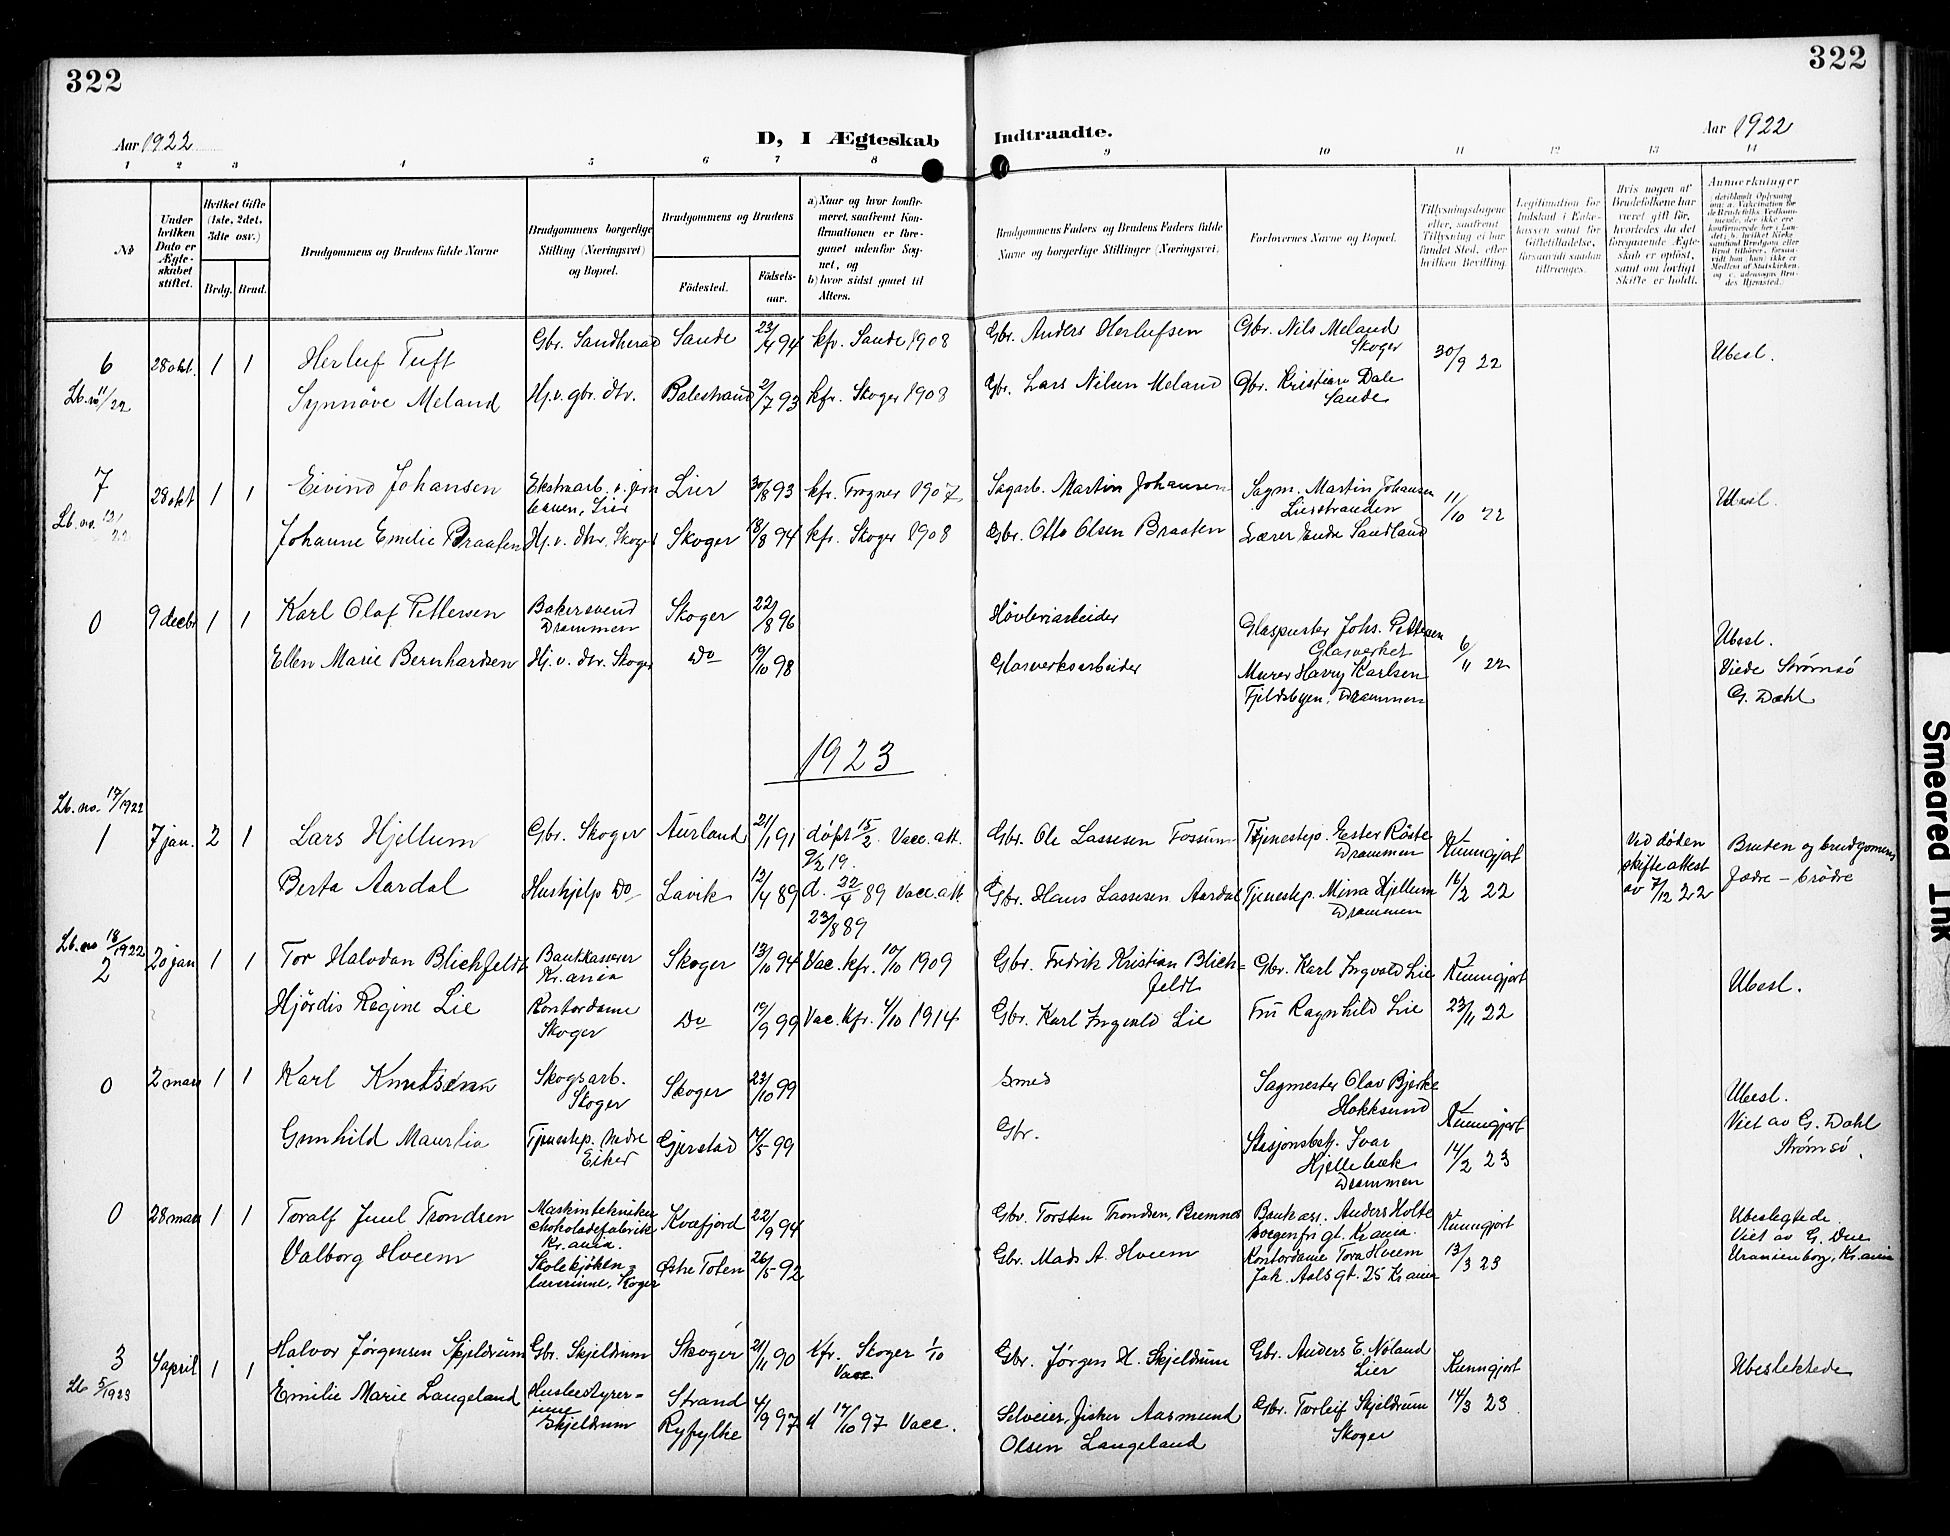 322
322
Aar 1922
D, I Ægteskab Indtraadte.
Aar 1922
1 2 3 4 5 6 7 8 9 10 11 12 13 14
No
Under hvilken Dato er Ægteskabet stiftet.
Hvilket Gifte (1ste, 2det, 3die osv.)
Brdg. Brud.
Brudgommens og Brudens fulde Navne
Brudgommens borgerlige Stilling (Næringsvei) og Bopæl.
Brudgommens og Brudens
Födested. Födselsaar.
a) Naar og hvor konfirmeret, saafremt Konfirmationen er foregaaet udenfor Sognet, og
b) hvor sidst gaaet til Alters.
Brudgommens Faders og Brudens Faders fulde Navne og borgerlige Stillinger (Næringsvei).
Forlovernes Navne og Bopæl.
Tillysningsdagene eller, saafremt Tillysning ei har fundet Sted, efter hvilken Bevilling.
Legitimation for Indskud i Enkekassen samt for Giftetilladelse, forsaavidt saadan tiltrænges.
Hvis nogen af Brudefolkene har været gift før, hvorledes da det foregaaende Ægteskab er opløst, samt om lovligt Skifte er holdt.
Anmærkninger
6 28 okt. 1 1 Herluf Tuft Gbr. Sandherad Sande 23/4 94 kfr. Sande 1908 Gbr. Anders Herlufsen Gbr. Nils Meland Skoger 30/9 22 Ubesl.
Lb. no 11/22 Synnöve Meland Hj.v. gbr. dtr. Balestrand 2/7 93 kfr. Skoger 1908 Gbr. Lars Nilsen Meland Gbr. Kristian Dale Sande
7 28 okt 1 1 Eivind Johansen Ekstraarb. v. jernbanen, Lier Lier 30/8 93 kfr. Frogner 1907 Sagarb. Martin Johansen Sagm. Martin Johansen Lierstranden 11/10 22 Ubesl.
Lb. no. 12/22 Johanne Emilie Braaten Hj. v. dtr. Skoger Skoger 18/8 94 kfr. Skoger 1908 Gbr. Otto Olsen Braaten Lærer Endre Sandland
0 9 decbr 1 1 Karl Olaf Pettersen Bakersvend Drammen Skoger 22/8 96 Hövleriarbeider Glaspuster Johs. Pettersen Glasverket 6/11 22 Ubesl.
Ellen Marie Bernhardsen Hj. v. dtr. Skoger Do 19/10 98 Glasverksarbeider Murer Harry Karlsen Fjeldsbyen, Drammen Viede Strømsö G. Dahl
1923
Lb. no. 17/1922
1 7 jan. 2 1 Lars Hjellum Gbr. Skoger Aurland 21/1 91 döpt 15/2. Vacc. att. 9/2 19. Gbr. Ole Lassesen Fossum Tjenestep. Ester Röste Drammen Kunngjort Ved döden skifteattest av 7/12 22 Bruden og brudgomens
Berta Aardal Hushjelp Do Lavik 12/4 89 d. 22/4 89 Vacc. att. 23/8 89 Gbr. Hans Lassesen Aardal Tjenestep. Minna Hjellum Drammen 16/2 22 fædre - brödre
Lb. no 18/1922
2 20 jan 1 1 Tor Halvdan Blichfeldt Bankkasserer Kr.ania Skoger 13/10 94 Vac. kfr. 10/10 1909 Gbr. Fredrik Kristian Blichfeldt Gbr. Karl Ingvald Lie Kunngjort Ubesl.
Hjördis Regine Lie Kontordame Skoger Do 19/9 99 Vac. kfr. 4/10 1914 Gbr. Karl Ingvald Lie Fru Ragnhild Lie 23/11 22
0 2 mars 1 1 Karl Knutsen Skogsarb. Skoger Skoger 23/10 99 Smed Sagmester Olav Bjerke Hokksund Kunngjort Ubesl.
Gunhild Maurlia Tjenestep. Nedre Eiker Gjerstad 14/5 99 Gbr. Stasjonsbetj. Ivar Hjellebæk Drammen 14/2 23 Viet av G. Dahl Strømsö.
0 28 mars 1 1 Toralf Juul Trondsen Maskintekniker chokoladefabrik Kr.ania. Kvæfjord 22/9 94 Gbr. Torsten Trondsen, Bremnes Bankass. Anders Holte gt. Kr.ania. Kunngjort Ubeslegtede.
Valborg Hveem Skolekjökenlærerinne, Skoger Østre Toten 26/5 92 Gbr. Mads A. Hveem Kontordame Tora Hveem Joh. Aalsgt. 25 Kr.ania 13/3 23 Viet av G. Due Uranienborg, Kr.ania
3 4 april 1 1 Halvor Jörgensen Skjeldrum Gbr. Skjeldrum Skoger 21/11 90 Kfr. Skoger 1/10 Vacc Gbr. Jörgen H. Skjeldrum Gbr. Anders E. Nöland Lier Kunngjort Ubeslektede
Lb 5/1923 Emilie Marie Langeland Husbestyrerinne Skjeldrum Strand Ryfylke 4/9 97 d 17/10 97 Vacc. Selveier, fisker Aasmund Olsen Langeland Gbr. Torleif Skjeldrum Skoger 14/3 23
Smeared Ink